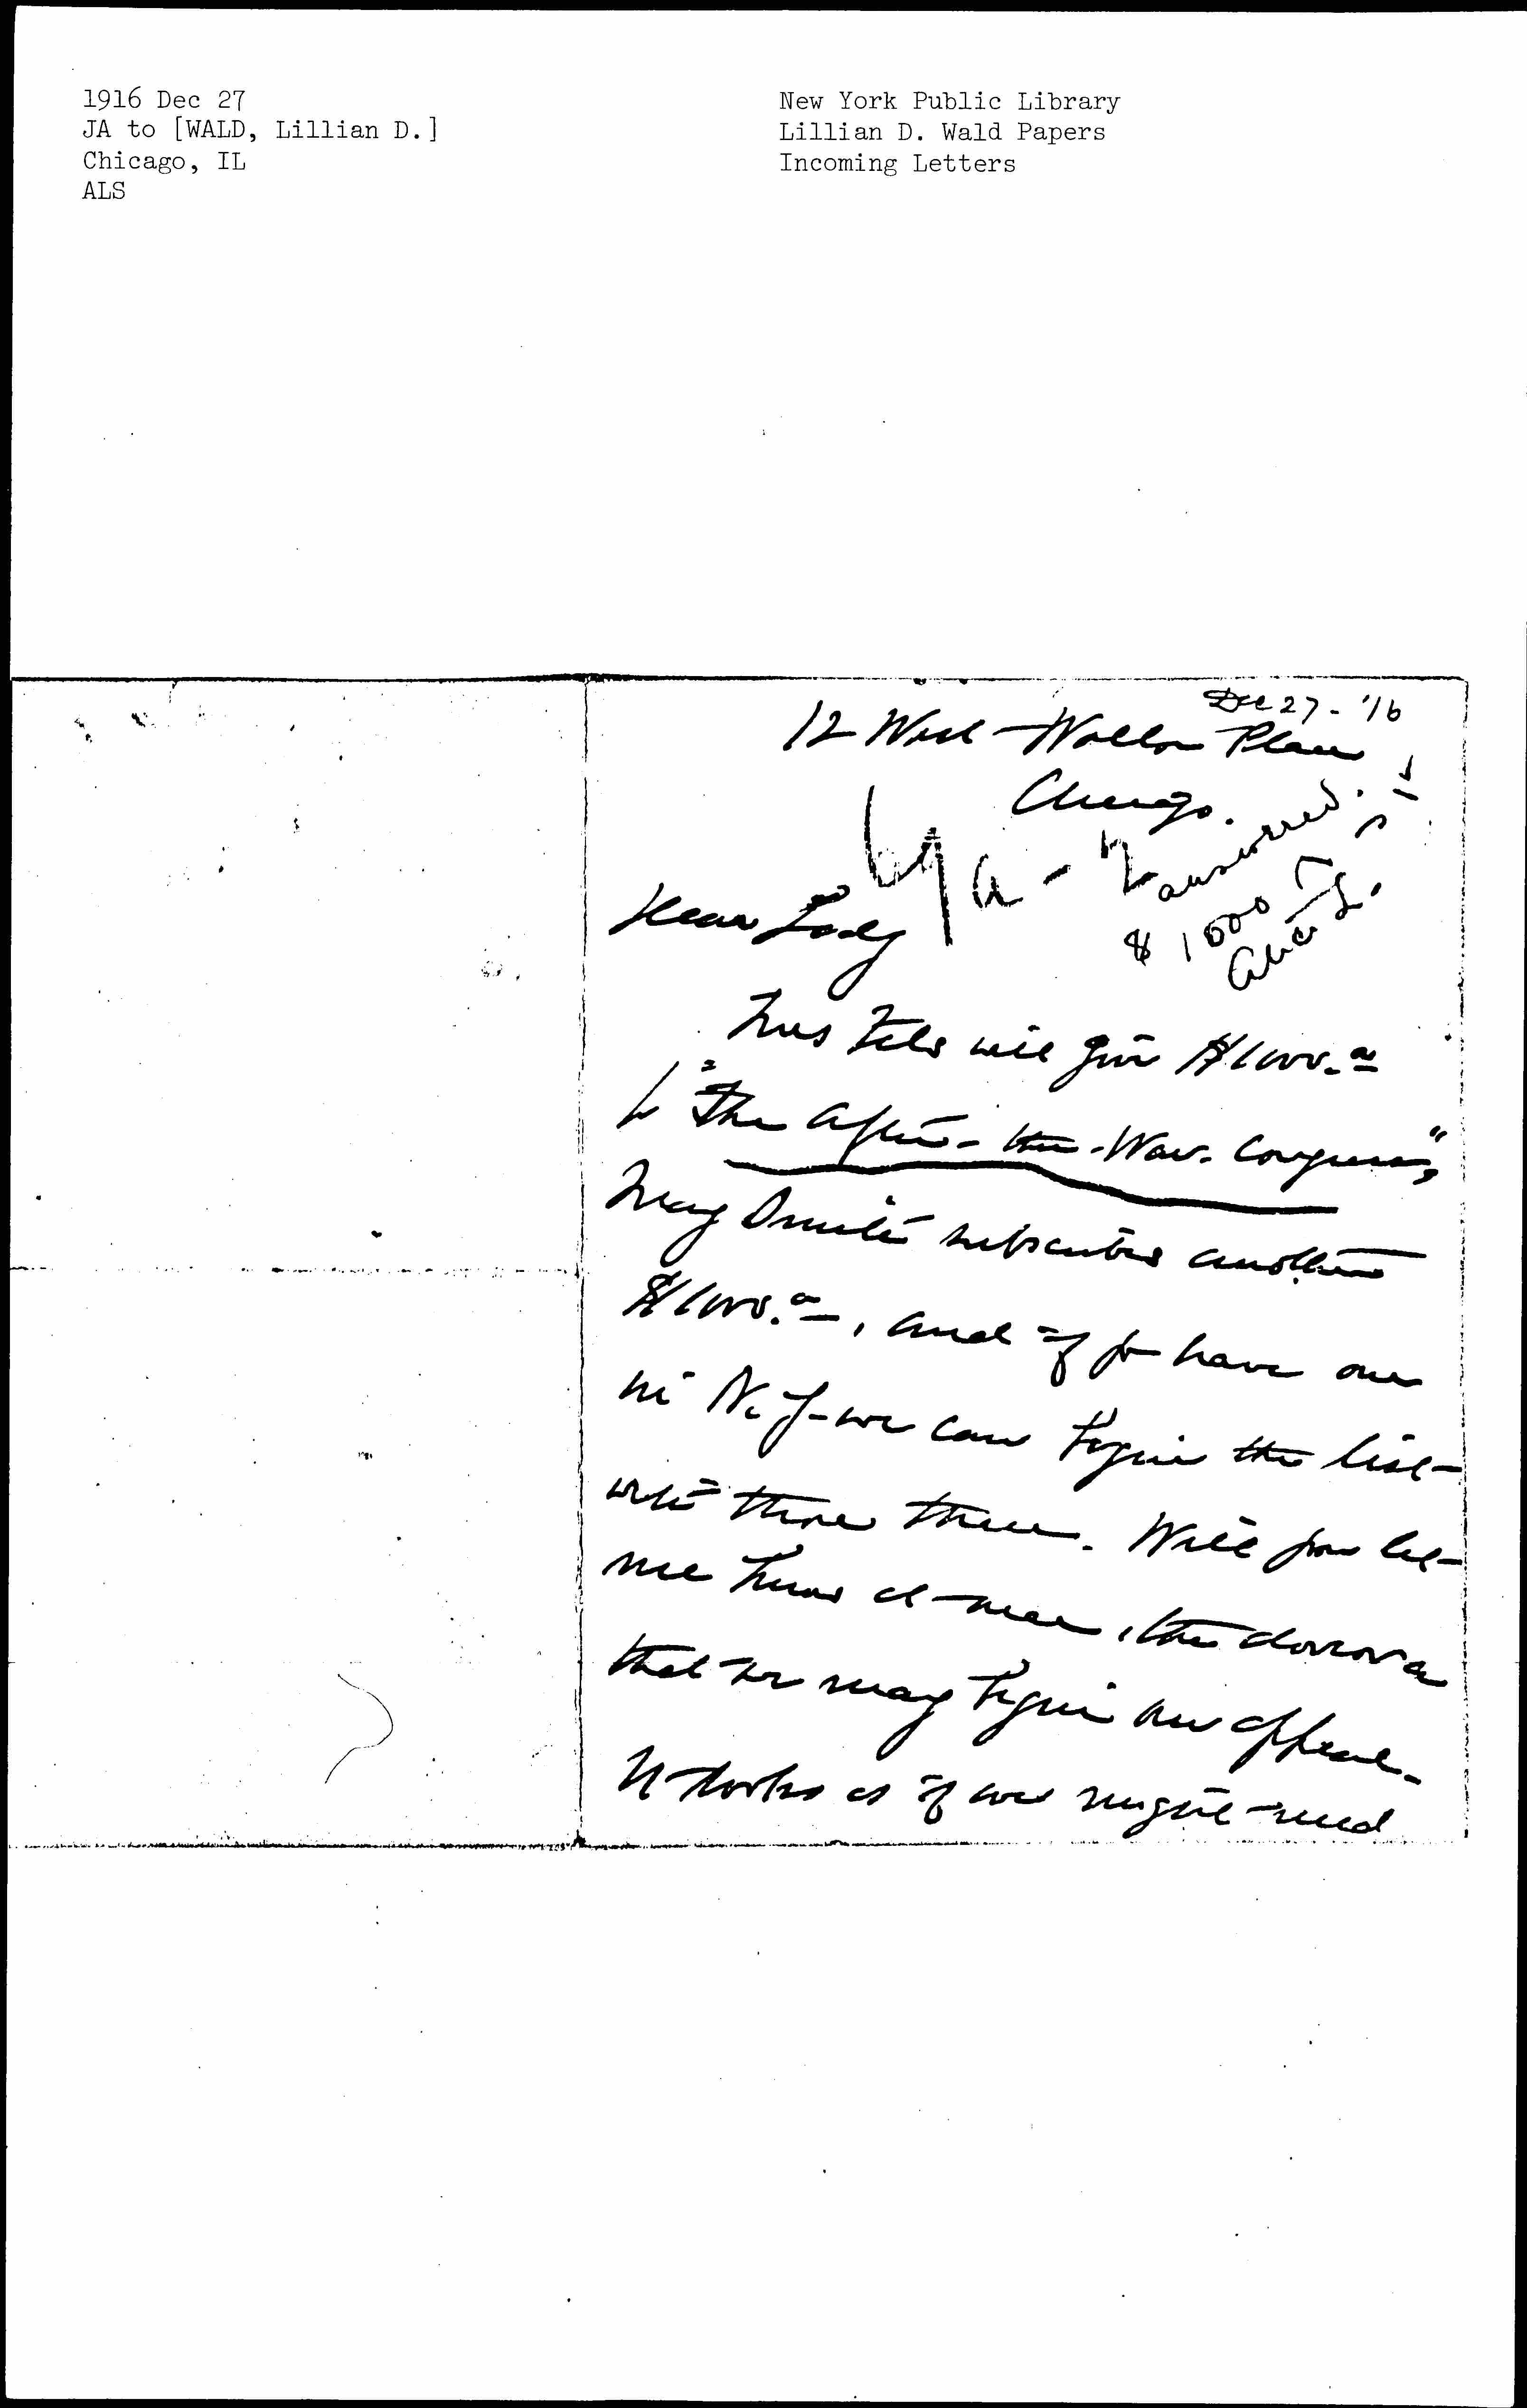 1916 Dec 27
JA to [WALD, Lillian D.]
Chicago, IL
ALS
New York Public Library
Lillian D. Wald Papers
Incoming Letters
Dec 27 - '16
12 West Walton Place
Chicago.
answered.
$1000
Dear Lady
Mrs Fels will give $1000.00
to "The After-the-War-Congress",
May Smith subscribes another
$1000.00, and if you have one
in N.Y. we can begin the list
with those three. Will you let
me know at once, the donor a
that we may begin an appeal.
It looks as if we might need